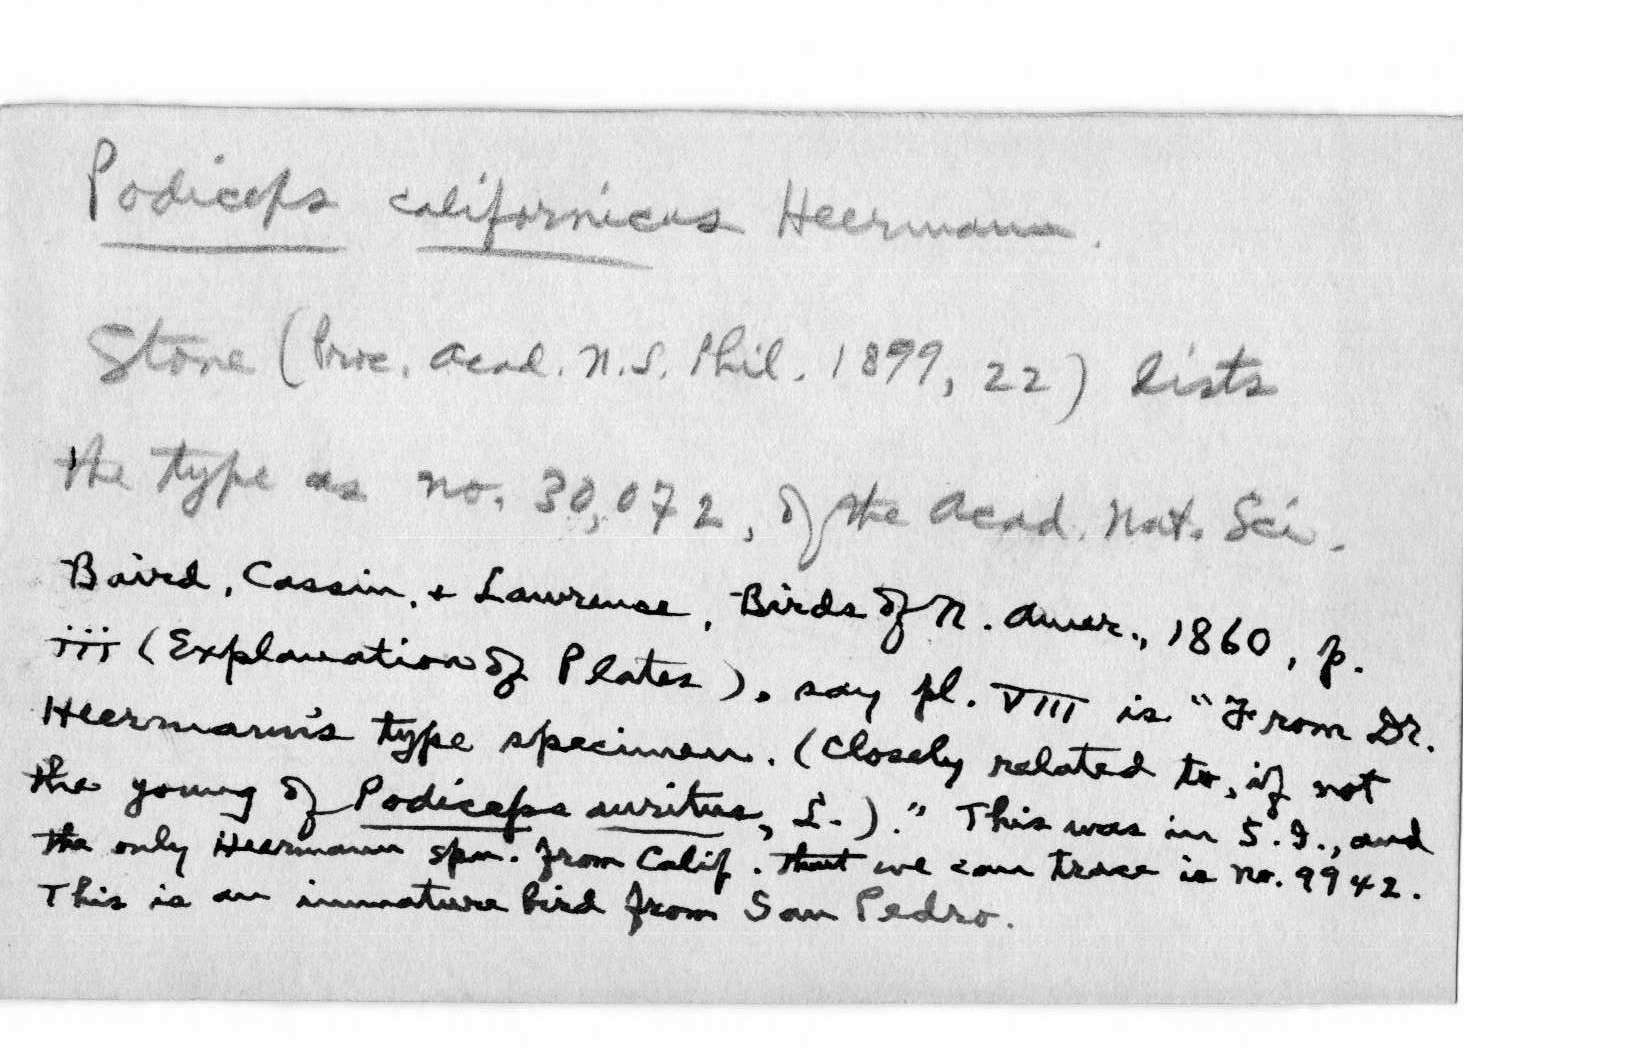 Podiceps californicus Heermann.
Stone (Proc. Acad. N.S. Phil. 1899, 22) lists
the type as no. 30,072, of the Acad. Nat. Sci.
Baird, Cassin, + Lawrence, Birds of N. Amer., 1860, p.
iii (Explanation of Plates), say pl. VIII is "From Dr.
Heermann's type specimen. (Closely related to, if not
the young of Podiceps auritus, L.)." This was in S.I., and
the only Heermann spm. from Calif. that we can trace is no. 9942.
This is an immature bird from San Pedro.